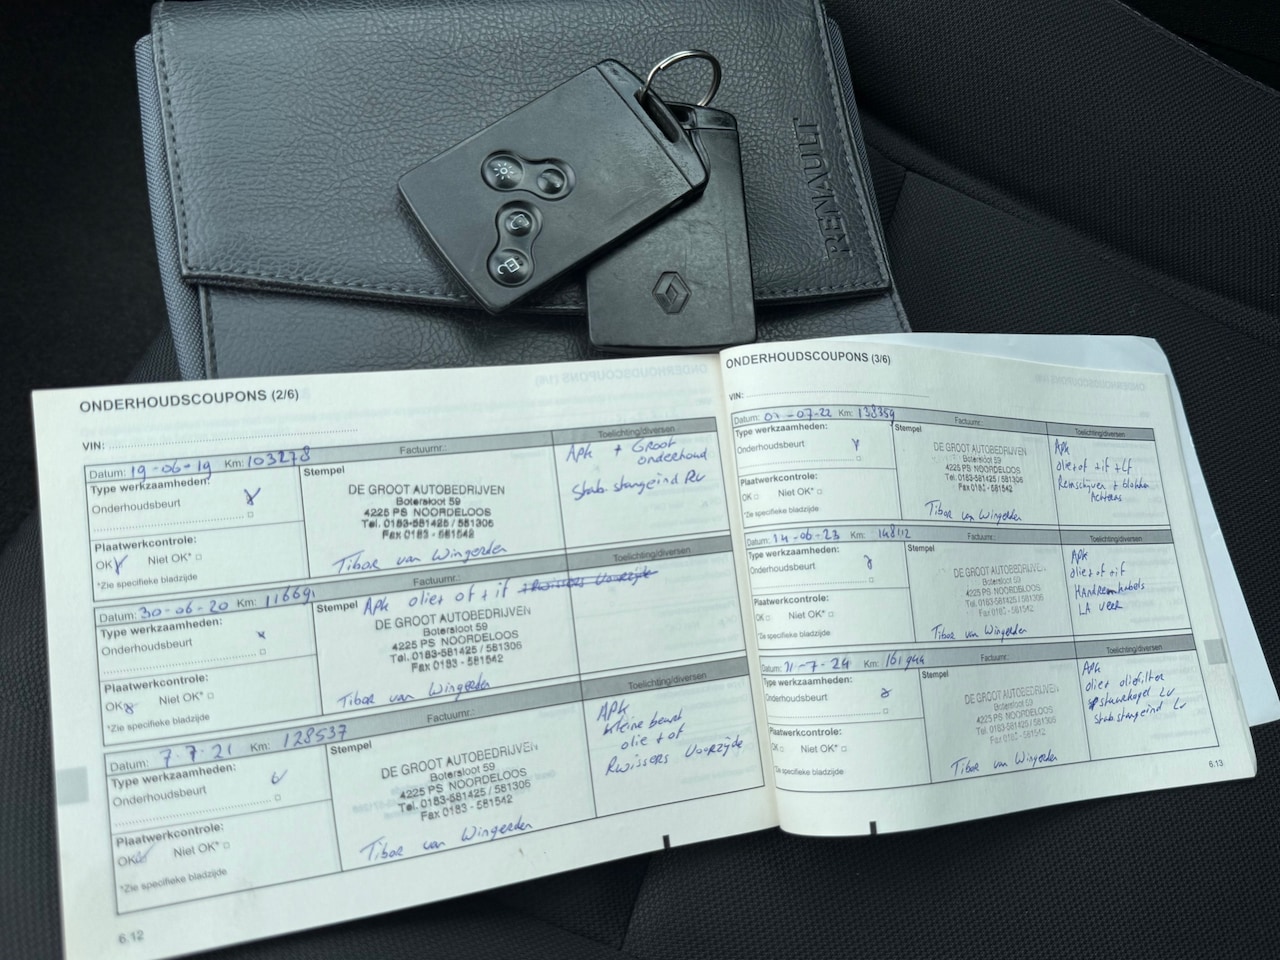 RENAULT
ONDERHOUDSCOUPONS (2/6)
VIN:
Datum: 19-06-19 Km: 103278 Factuurnr.:
Type werkzaamheden:
Onderhoudsbeurt
Plaatwerkcontrole:
OK Niet OK*
*Zie specifieke bladzijde
Stempel
DE GROOT AUTOBEDRIJVEN
Botersloot 59
4225 PS NOORDELOOS
Tel. 0183-581425 / 581306
Fax 0183 - 581542
Tibor van Wingerden
Toelichting/diversen
APK + Groot
onderhoud
Stab. stangeind RV
Datum: 30-06-20 Km: 116691 Factuurnr.:
Type werkzaamheden:
Onderhoudsbeurt
Plaatwerkcontrole:
OK Niet OK*
*Zie specifieke bladzijde
Stempel APK olie+ of + if + Rwissers Voorzijde
DE GROOT AUTOBEDRIJVEN
Botersloot 59
4225 PS NOORDELOOS
Tel. 0183-581425 / 581306
Fax 0183 - 581542
Tibor van Wingerden
Toelichting/diversen
Datum: 7-7-21 Km: 128537 Factuurnr.:
Type werkzaamheden:
Onderhoudsbeurt
Plaatwerkcontrole:
OK Niet OK*
*Zie specifieke bladzijde
Stempel
DE GROOT AUTOBEDRIJVEN
Botersloot 59
4225 PS NOORDELOOS
Tel. 0183-581425 / 581306
Fax 0183 - 581542
Tibor van Wingerden
Toelichting/diversen
APK
kleine beurt
olie + of
Rwissers Voorzijde
6.12
ONDERHOUDSCOUPONS (3/6)
VIN:
Datum: -07-22 Km: 138359 Factuurnr.:
Type werkzaamheden:
Onderhoudsbeurt
Plaatwerkcontrole:
OK Niet OK*
*Zie specifieke bladzijde
Stempel
DE GROOT AUTOBEDRIJVEN
Botersloot 59
4225 PS NOORDELOOS
Tel. 0183-581425 / 581306
Fax 0183 - 581542
Tibor van Wingerden
Toelichting/diversen
APK
olie+of + if + Lf
Remschijven + blokken
Achteras
Datum: 14-06-23 Km: 148112 Factuurnr.:
Type werkzaamheden:
Onderhoudsbeurt
Plaatwerkcontrole:
OK Niet OK*
*Zie specifieke bladzijde
Stempel
DE GROOT AUTOBEDRIJVEN
Botersloot 59
4225 PS NOORDELOOS
Tel. 0183-581425 / 581306
Fax 0183 - 581542
Tibor van Wingerden
Toelichting/diversen
APK
olie+of+if
HANDremkabels
LA veer
Datum: 11-7-24 Km: 161944 Factuurnr.:
Type werkzaamheden:
Onderhoudsbeurt
Plaatwerkcontrole:
OK Niet OK*
*Zie specifieke bladzijde
Stempel
DE GROOT AUTOBEDRIJVEN
Botersloot 59
4225 PS NOORDELOOS
Tel. 0183-581425 / 581306
Fax 0183 - 581542
Tibor van Wingerden
Toelichting/diversen
APK
olie+ oliefilter
stuurkogel LV
Stab stangeind LV
6.13